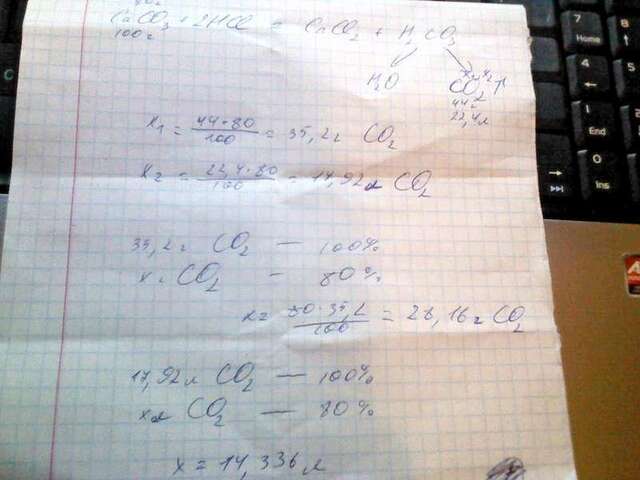 80г
CaCO3 + 2HCl = CaCl2 + H2CO3
100г
H2O
x1, x2
CO2↑
44г
22,4л
x1 = 44·80/100 = 35,2г CO2
x2 = 22,4·80/100 = 17,92л CO2
35,2г CO2 — 100%
xг CO2 — 80%
x = 80·35,2/100 = 28,16г CO2
17,92л CO2 — 100%
xл CO2 — 80%
x = 14,336л
7
Home
8
4
←
1
End
0
Ins